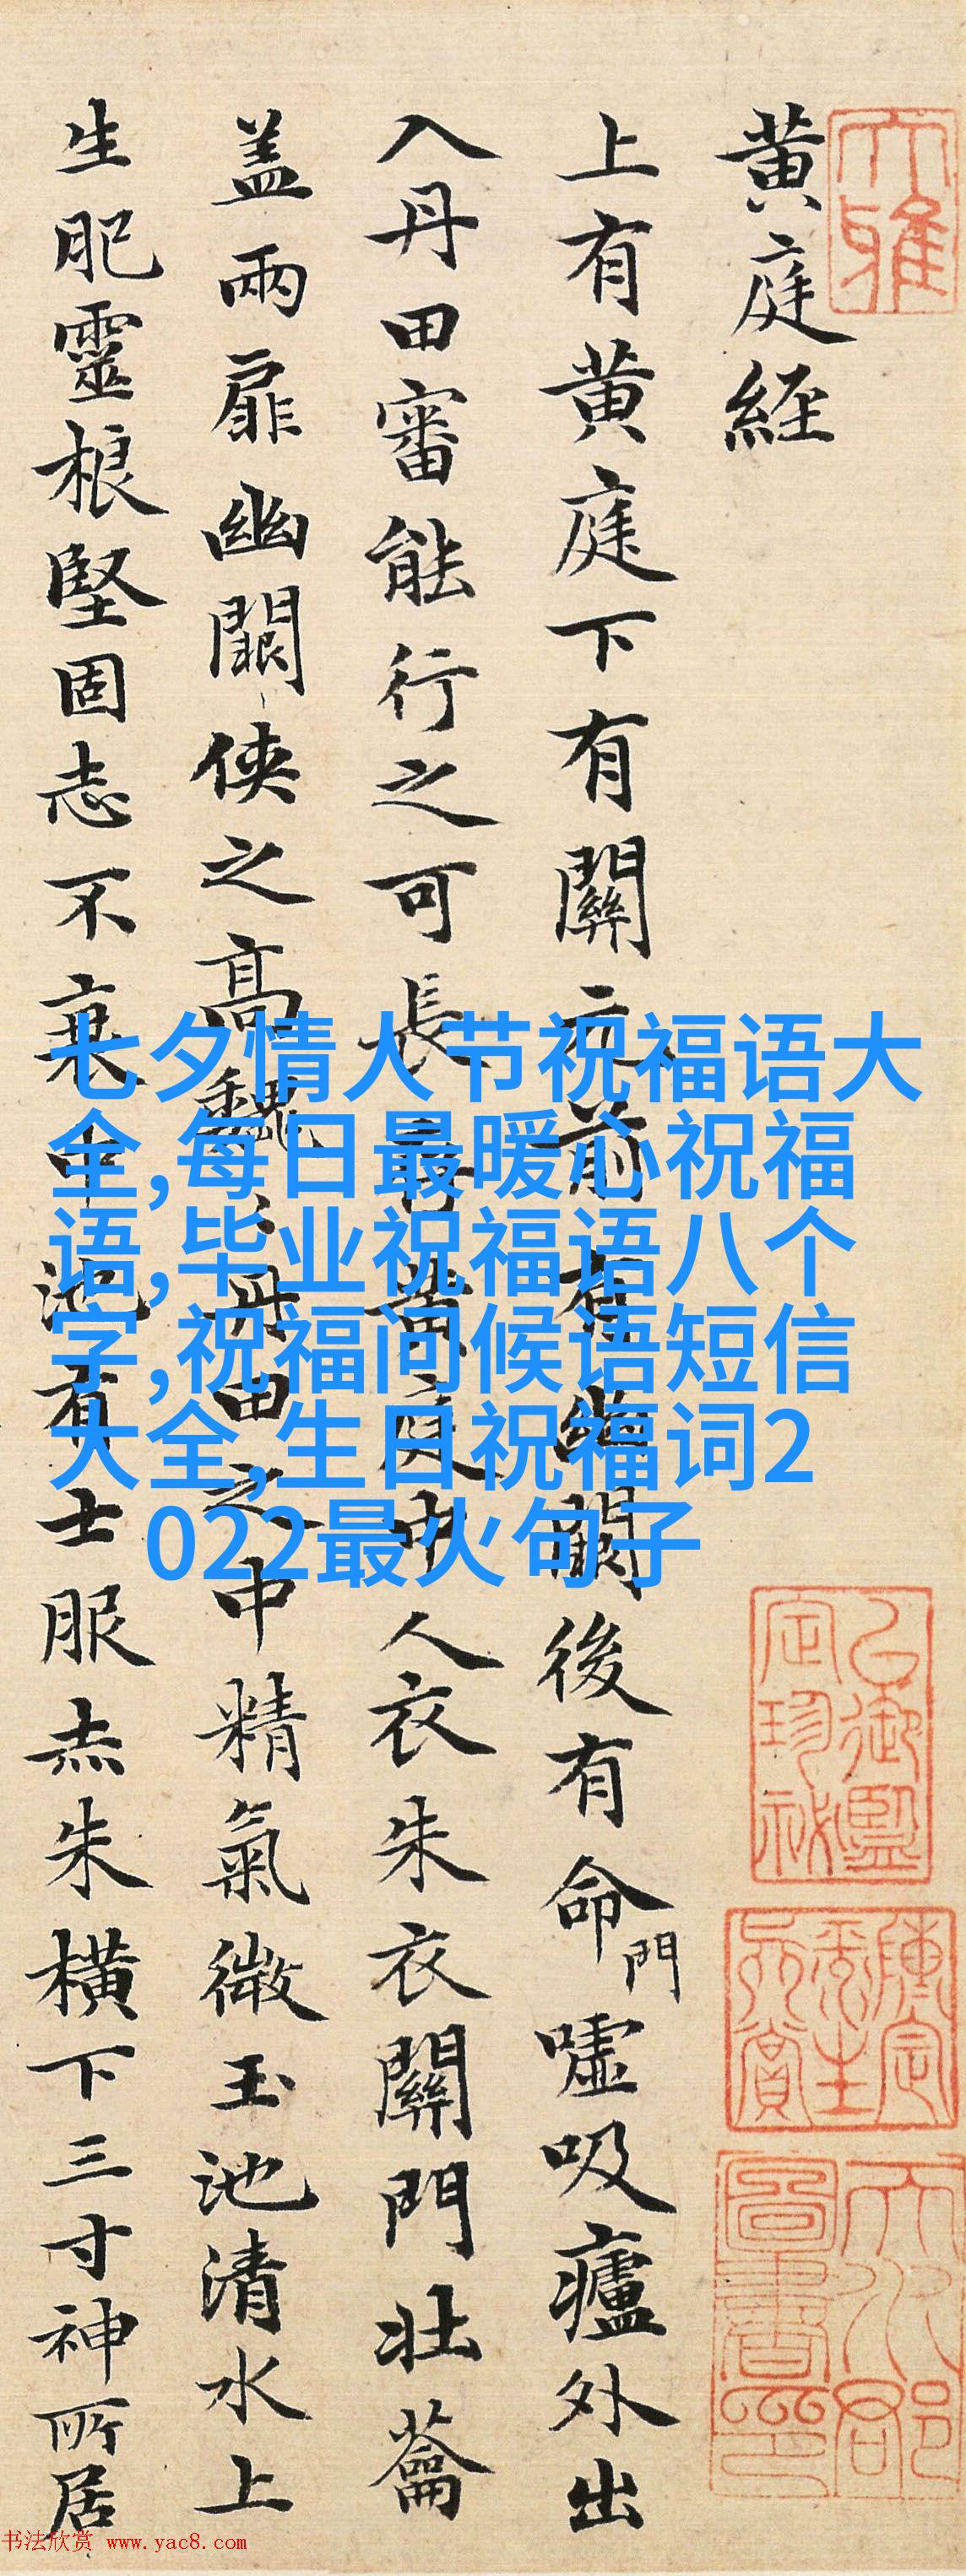 黄庭経
上有黄庭下有關元前有幽闕後有命門嘘吸廬外出
入丹田審能行之可長存黄庭中人衣朱衣關門壯蘥
盖兩扉幽闕侠之高魏丹田之中精氣微玉池清水上
生肥靈根堅固志不衰中池有士服赤朱横下三寸神所居
七夕情人节祝福语大
全,每日最暖心祝福
语,毕业祝福语八个
字,祝福问候语短信
大全,生日祝福词2
022最火句子
书法欣赏 www.yac8.com